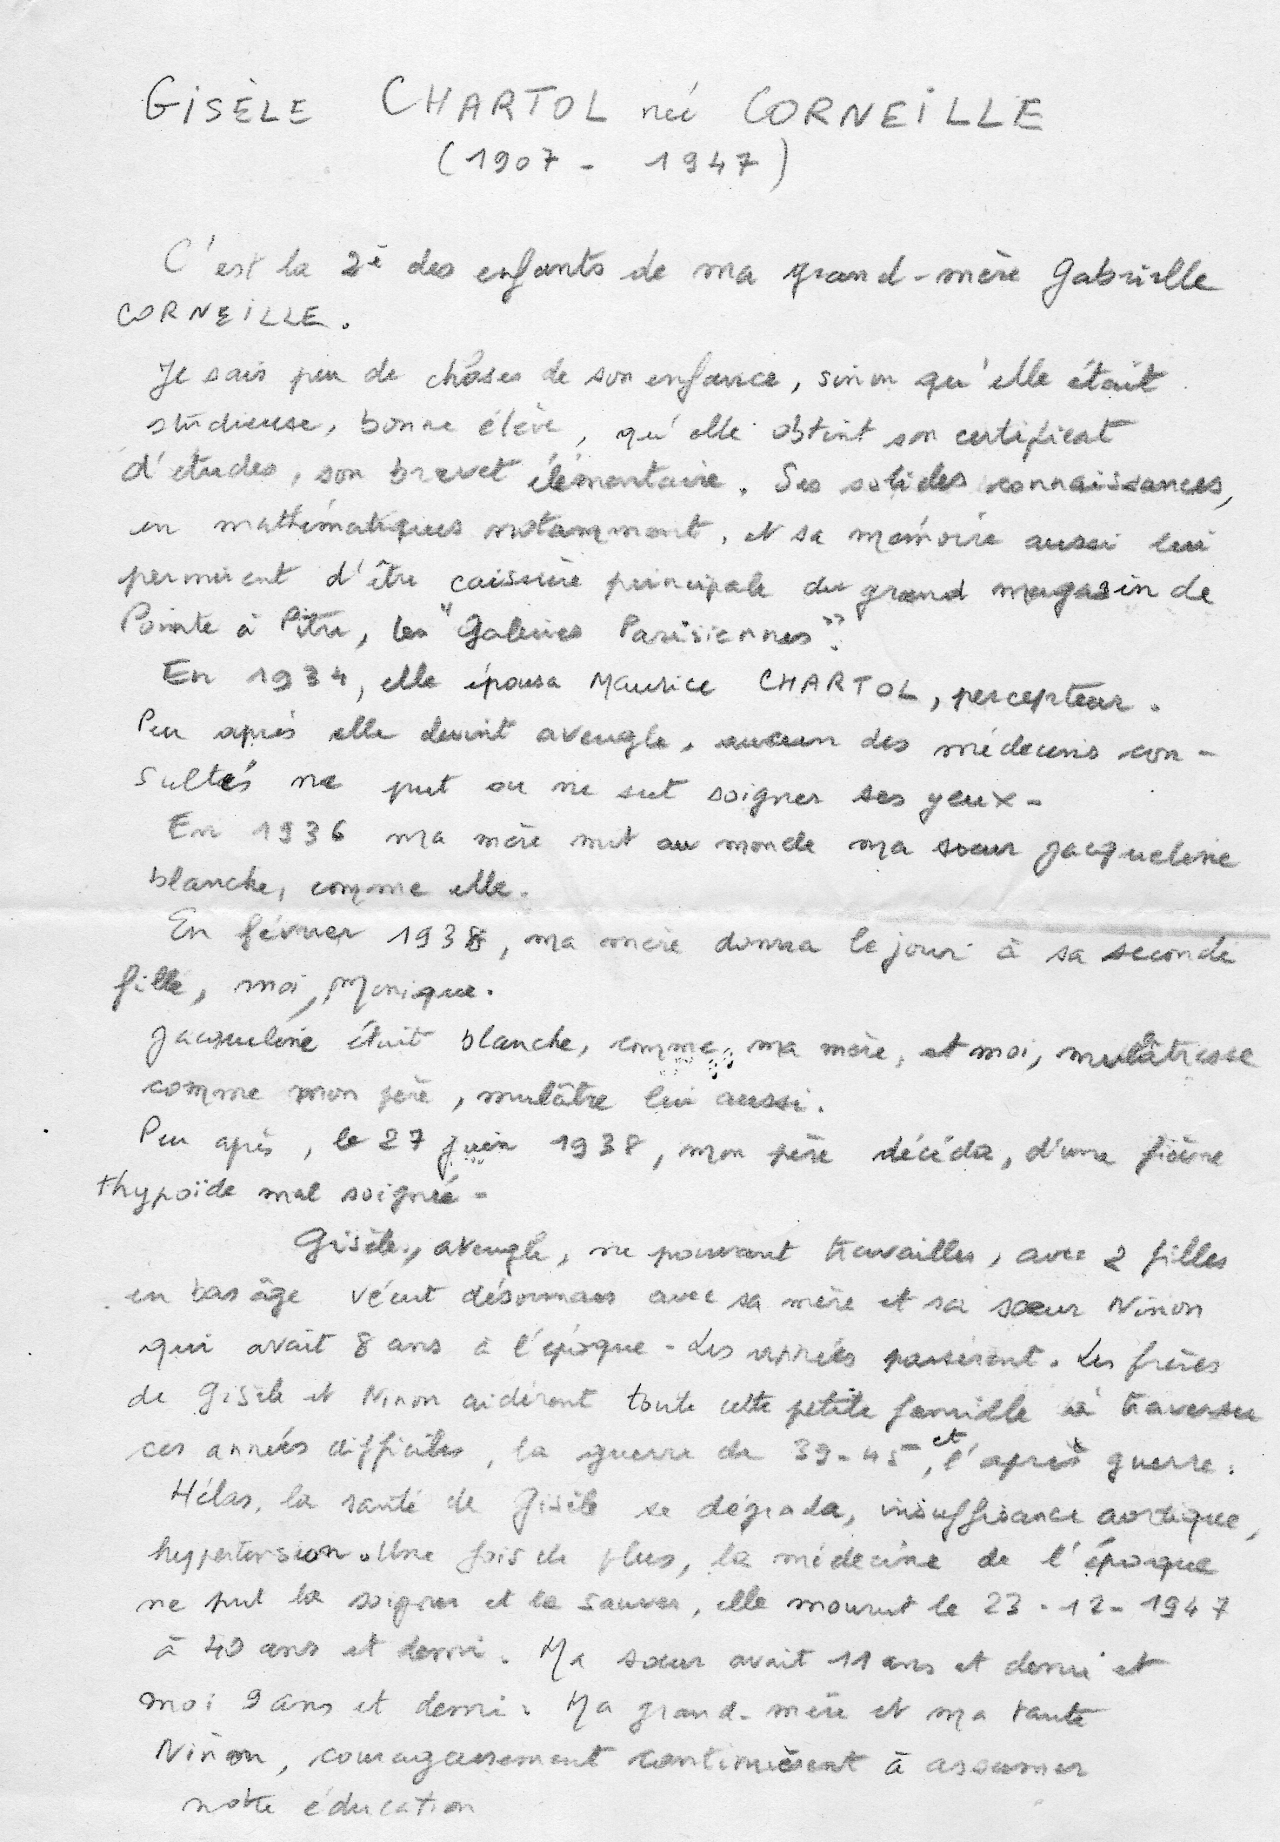 GISÈLE CHARTOL née CORNEILLE
(1907 - 1947)
C'est la 2è des enfants de ma grand-mère Gabrielle
CORNEILLE.
Je sais peu de choses de son enfance, sinon qu'elle était
studieuse, bonne élève, qu'elle obtint son certificat
d'études, son brevet élémentaire. Ses solides connaissances,
en mathématiques notamment, et sa mémoire aussi lui
permirent d'être caissière principale du grand magasin de
Pointe à Pitre, les "Galeries Parisiennes".
En 1934, elle épousa Maurice CHARTOL, percepteur.
Peu après elle devint aveugle, aucun des médecins con-
sultés ne put ou ne sut soigner ses yeux-
En 1936 ma mère mit au monde ma sœur Jacqueline
blanche, comme elle.
En février 1938, ma mère donna le jour à sa seconde
fille, moi, Monique.
Jacqueline était blanche, comme ma mère, et moi, mulâtresse
comme mon père, mulâtre lui aussi.
Peu après, le 27 juin 1938, mon père décéda, d'une fièvre
thypoïde mal soignée-
Gisèle, aveugle, ne pouvant travailler, avec 2 filles
en bas âge vécut désormais avec sa mère et sa sœur Ninon
qui avait 8 ans à l'époque - Les années passèrent. Les frères
de Gisèle et Ninon aidèrent toute cette petite famille à traverser
ces années difficiles, la guerre de 39-45, et l'après guerre.
Hélas, la santé de Gisèle se dégrada, insuffisance aortique,
hypertension. Une fois de plus, la médecine de l'époque
ne put la soigner et la sauver, elle mourut le 23-12-1947
à 40 ans et demi. Ma sœur avait 11 ans et demi et
moi 9 ans et demi. Ma grand-mère et ma tante
Ninon, courageusement continuèrent à assumer
notre éducation